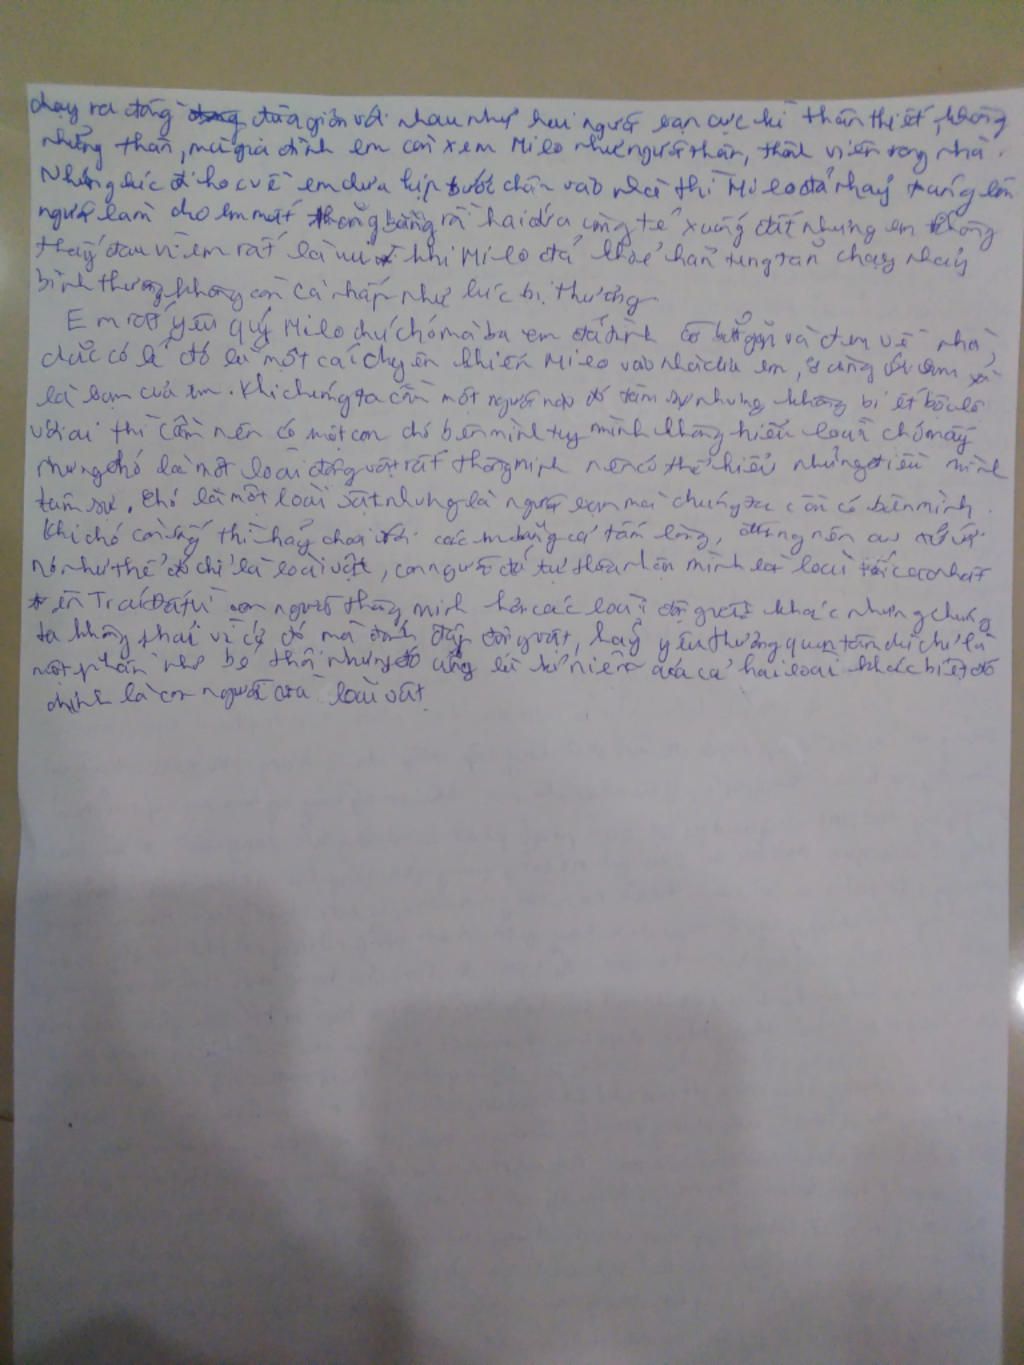 chạy ra đằng đùa giỡn với nhau như hai người bạn cực kì thân thiết, không
những thân, mà gia đình em còn xem Milo như người thân, thành viên trong nhà.
Những lúc đi học về em chưa kịp bước chân vào nhà thì Milo đã nhảy trúng lên
người làm cho em mất thăng bằng rồi hai đứa cùng té xuống đất nhưng em không
thấy đau vì em rất là vui khi Milo đã khoẻ hẳn tung tăn chạy nhảy
bình thường không còn cà nhấp như lúc bị thương
Em rất yêu quý Milo chú chó mà ba em đã tình cờ bắt gặp và đem về nhà,
chắc có lẽ đó là một cái duyên khiến Milo vào nhà của em, với em
là bạn của em. Khi chúng ta cần một người nào đó tâm sự nhưng không biết bộc lộ
với ai thì cần nên có một con chó bên mình tuy mình không hiểu loài chó mấy
nhưng chó là một loài động vật rất thông minh nên có thể hiểu những điều mình
tâm sự. Chó là một loài vật nhưng là người bạn mà chúng ta cần có bên mình.
Khi chó còn thì hãy chơi với các em bằng cả tấm lòng, đừng nên cư xử với
nó như thế đó chỉ là loài vật, con người đã tự thừa nhận mình là loài cao nhất
trên Trái Đất vì con người thông minh hơn các loài động vật khác nhưng chúng
ta không phải vì cớ đó mà đánh đập động vật, hãy yêu thương quan tâm dù chỉ là
một phần nhỏ bé thôi nhưng đó cũng là kỉ niệm của cả hai loài khác biệt đó
chính là con người và loài vật